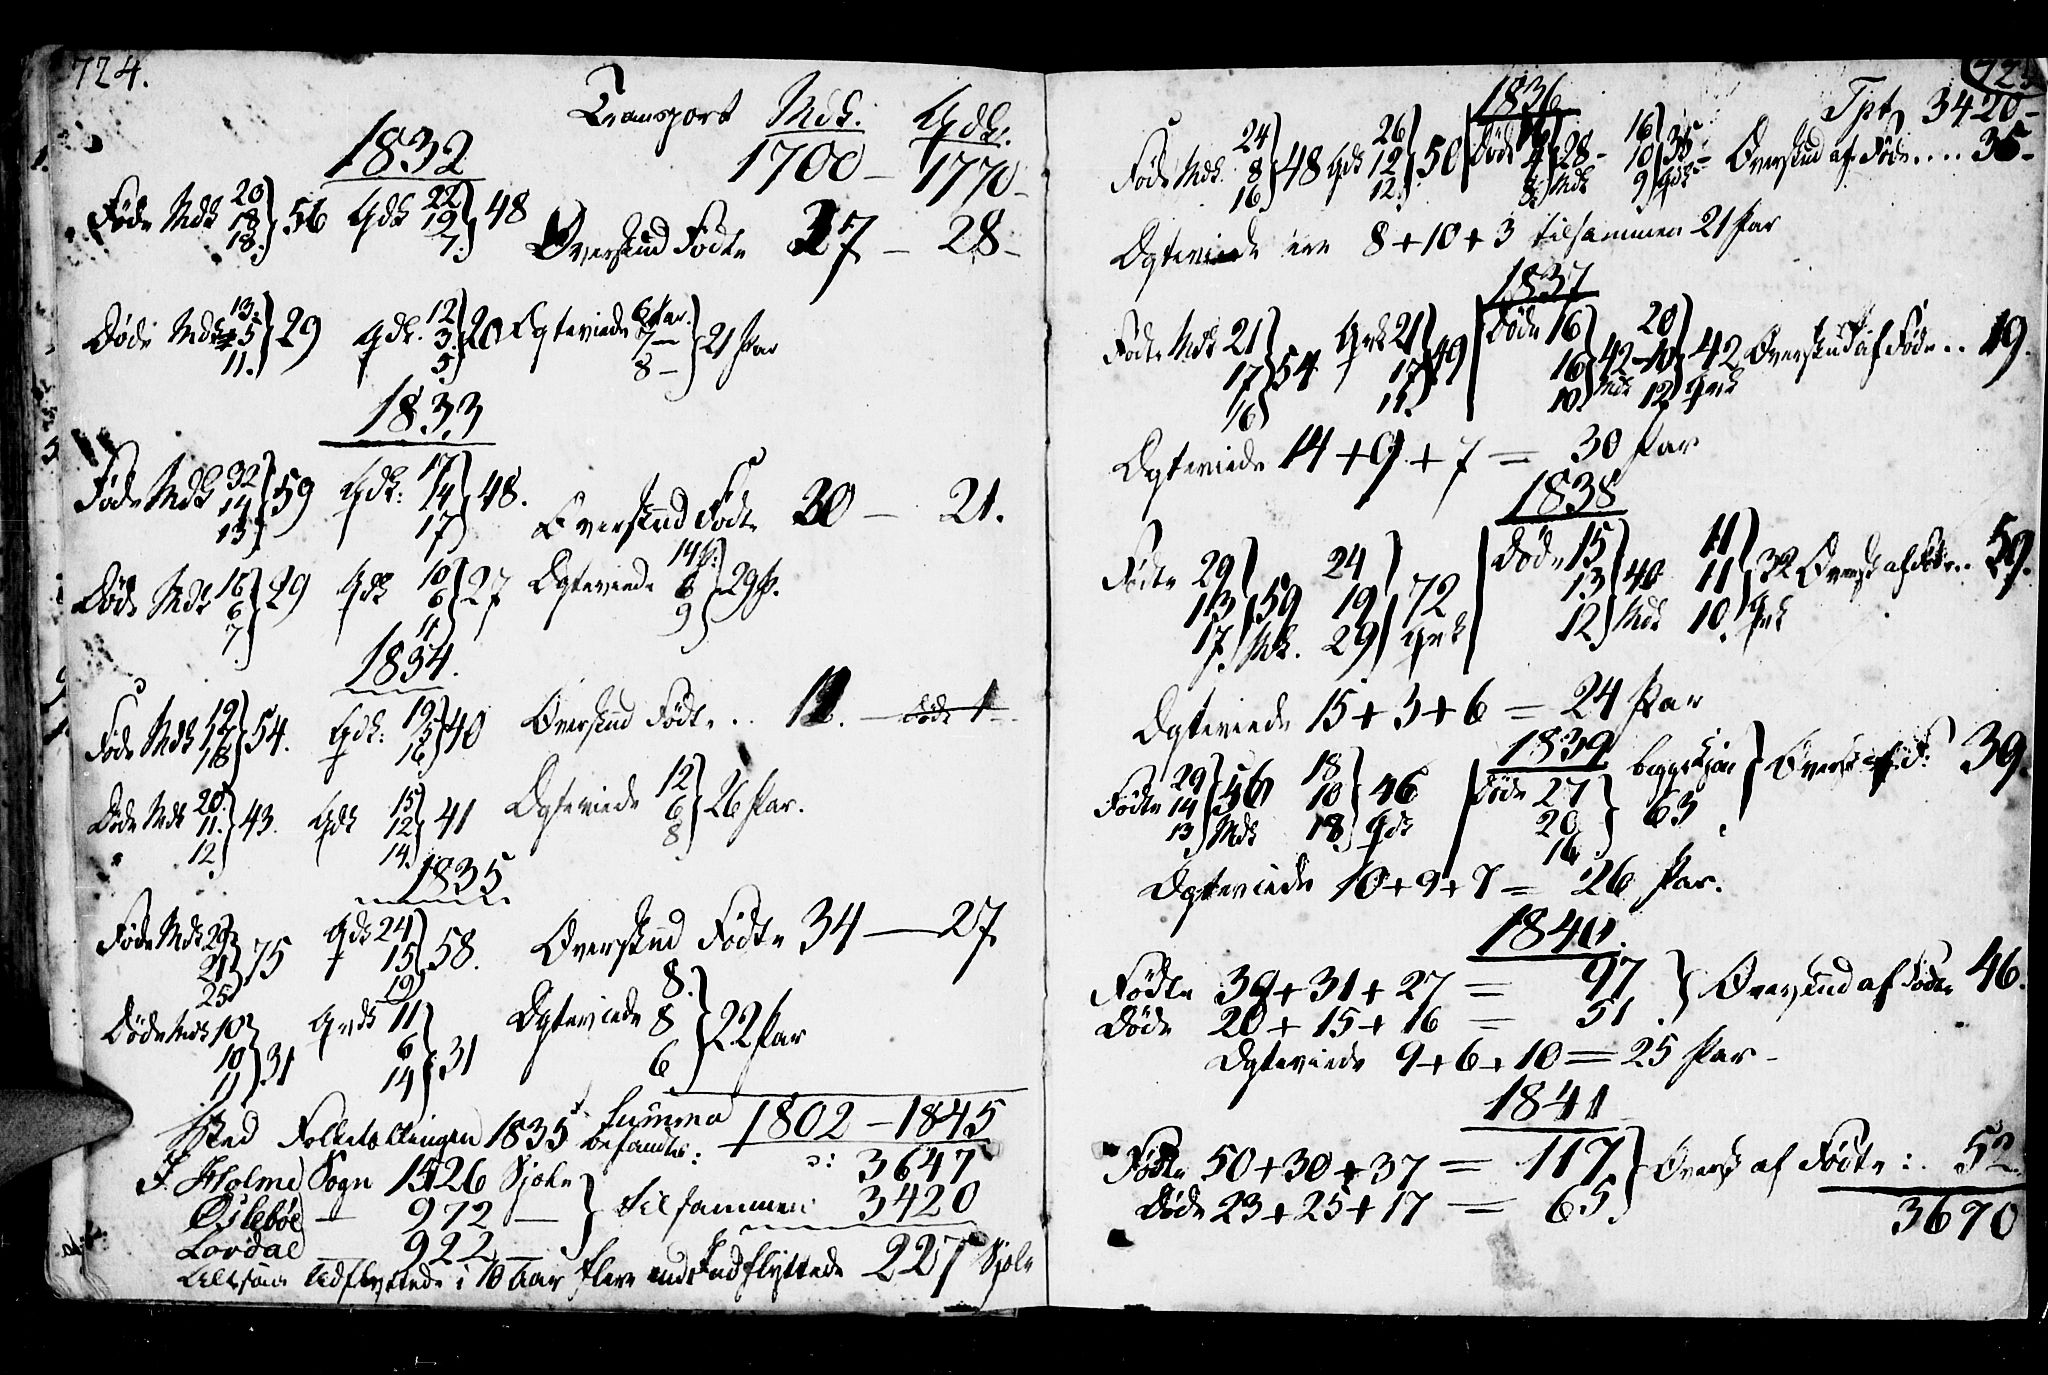 724.
Transport Mdk: Qvdk:
1832 1700 – 1770 –
Föde Mdk 20 18 18 } 56 Qvdk 22 19 7 } 48 Overskud Födte 27 – 28 –
Döde Mdk 13 5 11 } 29 Qvdk. 12 3 5 } 20 Egteviede 6 Par. 7 — 8 – } 21 Par
1833
Föde Mdk 32 14 13 } 59 Qvdk: 17 14 17 } 48. Overskud Födte 30 — 21.
Döde Mdk 16 6 7 } 29 Qvdk 10 6 11 } 27 Egteviede 14 P. 6 9 } 29 P.
1834.
Föde Mdk 19 17 18 } 54. Qvdk: 19 5 16 } 40 Overskud Födte .. 11. — döde 1 —
Döde Mdk 20 11. 12 } 43. Qvdk 15 12 14. } 41 Egteviede 12 6 8 } 26 Par.
1835
Föde Mdk 29 21 25 } 75 Qvdk 24 15 19 } 58. Overskud Födte 34 — 27
Döde Mdk 10 10 11 } 31 Qvdk 11 6 14 } 31 Egteviede 8. 8 6 } 22 Par
Summa 1802 – 1845
Ved Folketællingen 1835 befandtes: ɔ: 3647
I Holme Sogn 1526 Sjæle
Öslebøe — 972 — } tilsammen 3420
Lovdal — 922 —
Altsaa Udflyttede i 10 Aar flere end Indflyttede 227 Sjæle
725
1836 Tpt 3420 –
Föde Mdk. 24 8 16 } 48 Qvdk 26 12 12. } 50 Döde 16 4 8 } 28 – Mdk 16 10 9 } 35 – Qvdk Overskud af Föde.... 35 –
Egteviede ere 8 + 10 + 3 tilsammen 21 Par
1837
Föde Mdk 21 17 16 } 54 Qvdk 21 17 11. } 49 Döde 16 16 10 } 42 – Mdk 20 10 12 } 42 Qvdk Overskud af Föde .. 19.
Egteviede 14 + 9 + 7 = 30 Par
1838
Födte 29 13 17. } 59 Mdk. 24 19 29 } 72 Qvdk Döde 15 13 12 } 40 Mdk 11 11 10. } 32 Qvdk Oversk af Föde .. 59.
Egteviede 15 + 3 + 6 = 24 Par
1839
Födte 29 14 13 } 56 Mdk 18 10 18 } 46 Qvdk Döde 27 20 16 } begge Kjön 63 } Oversk af F: 39.
Egteviede 10 + 9 + 7 = 26 Par.
1840.
Födte 39 + 31 + 27 = 97 } Overskud af Födte 46.
Döde 20 + 15 + 16 = 51
Egteviede 9 + 6 + 10 = 25 Par –
1841
Födte 50 + 30 + 37 = 117 } Oversk af Födte :. 52
Döde 23 + 25 + 17 = 65
3670